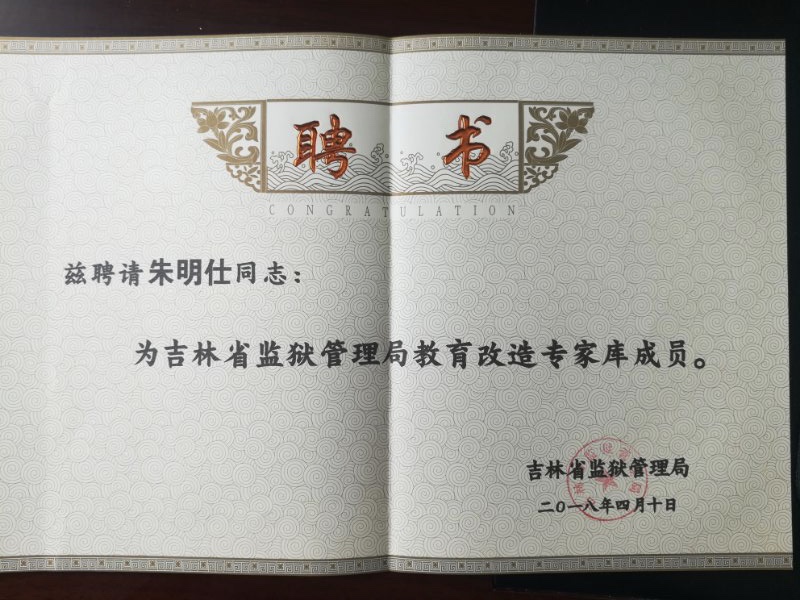 聘书
CONGRATULATION
兹聘请朱明仕同志：
为吉林省监狱管理局教育改造专家库成员。
吉林省监狱管理局
二〇一八年四月十日